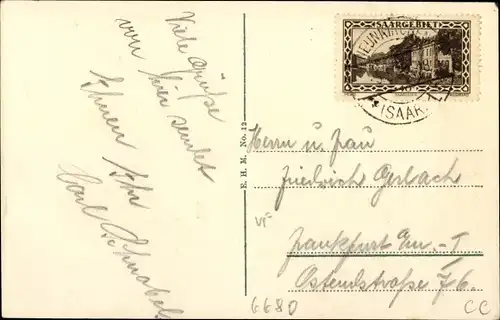 Viele Grüße
von hier sendet
Ihnen Ihr
Carl Schnabel
SAARGEBIET
NEUNKIRCHEN
(SAAR)
E. H. M. No. 12
Herrn u. Frau
Friedrich Gerlach
Frankfurt
Ostendstraße 76.
6680
CC